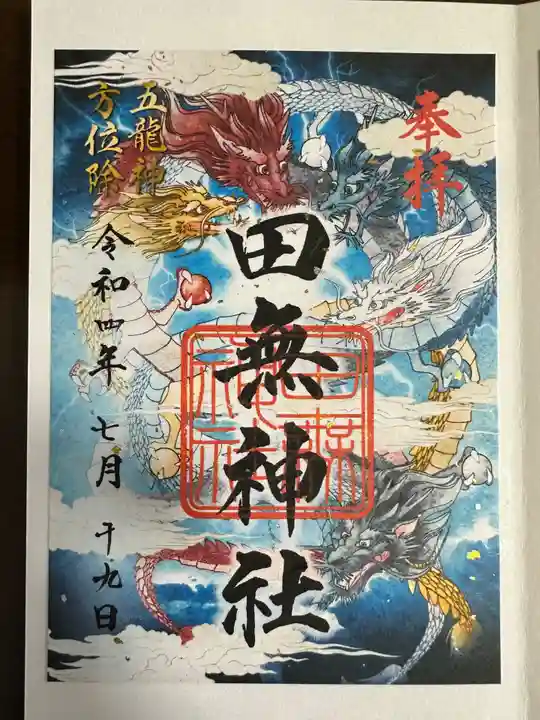 奉拝
田無神社
田無神社
五龍神
方位除
令和四年 七月 十九日